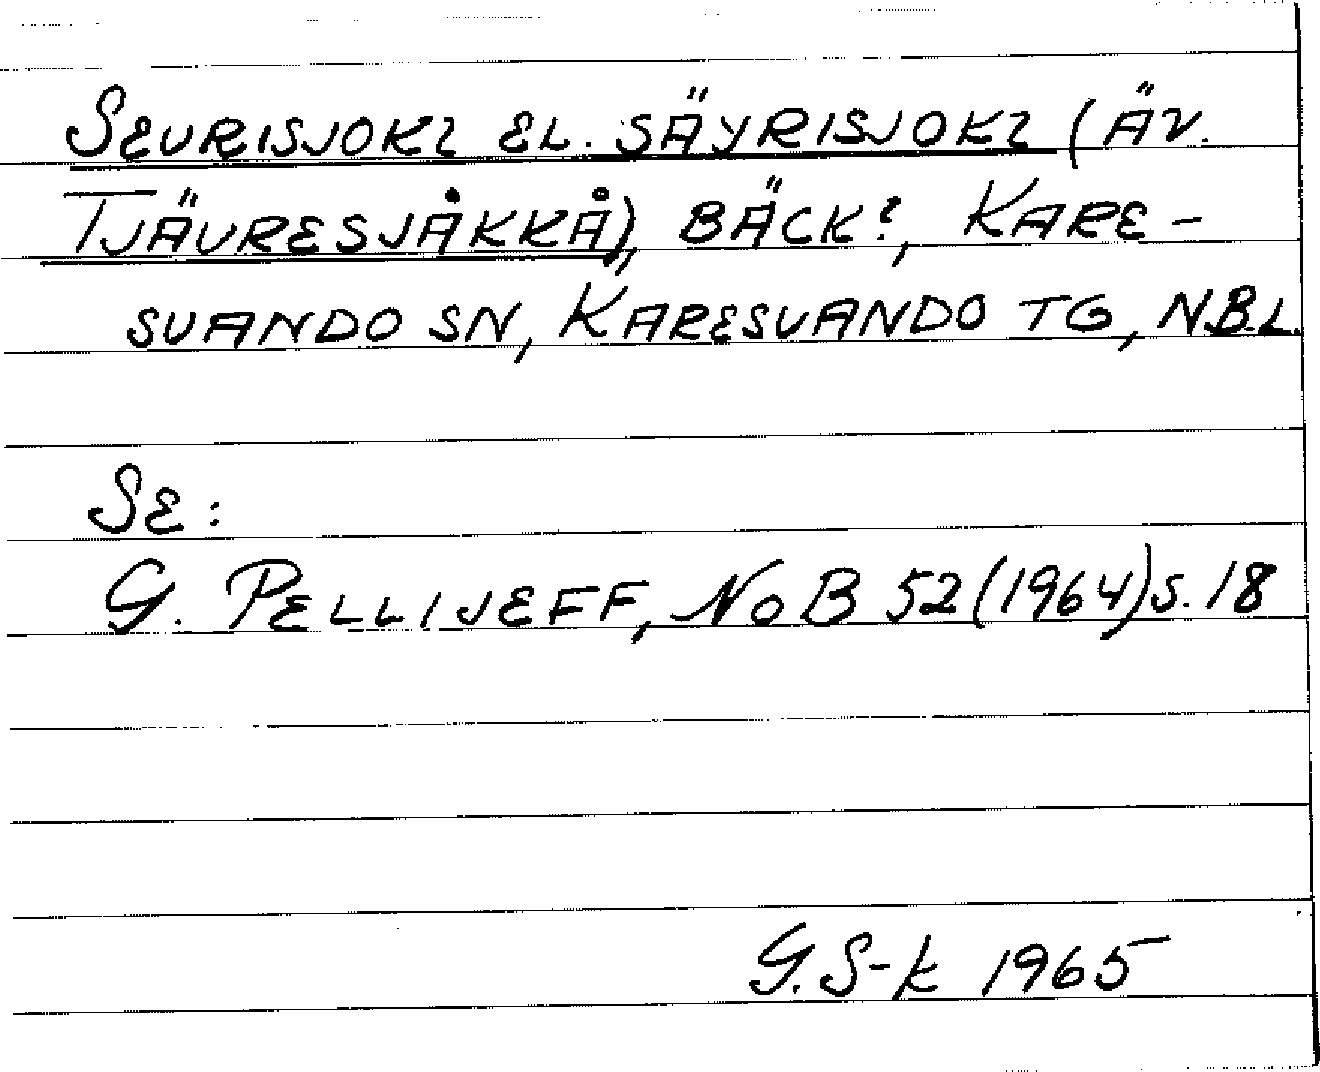 SEURISJOKI EL. SÄYRISJOKI (ÄV.
TJÄURESJÅKKÅ), BÄCK?, KARE-
SUANDO SN, KARESUANDO TG, NBL.
SE:
G. PELLIJEFF, NoB 52 (1964) S. 18
G. S-k 1965